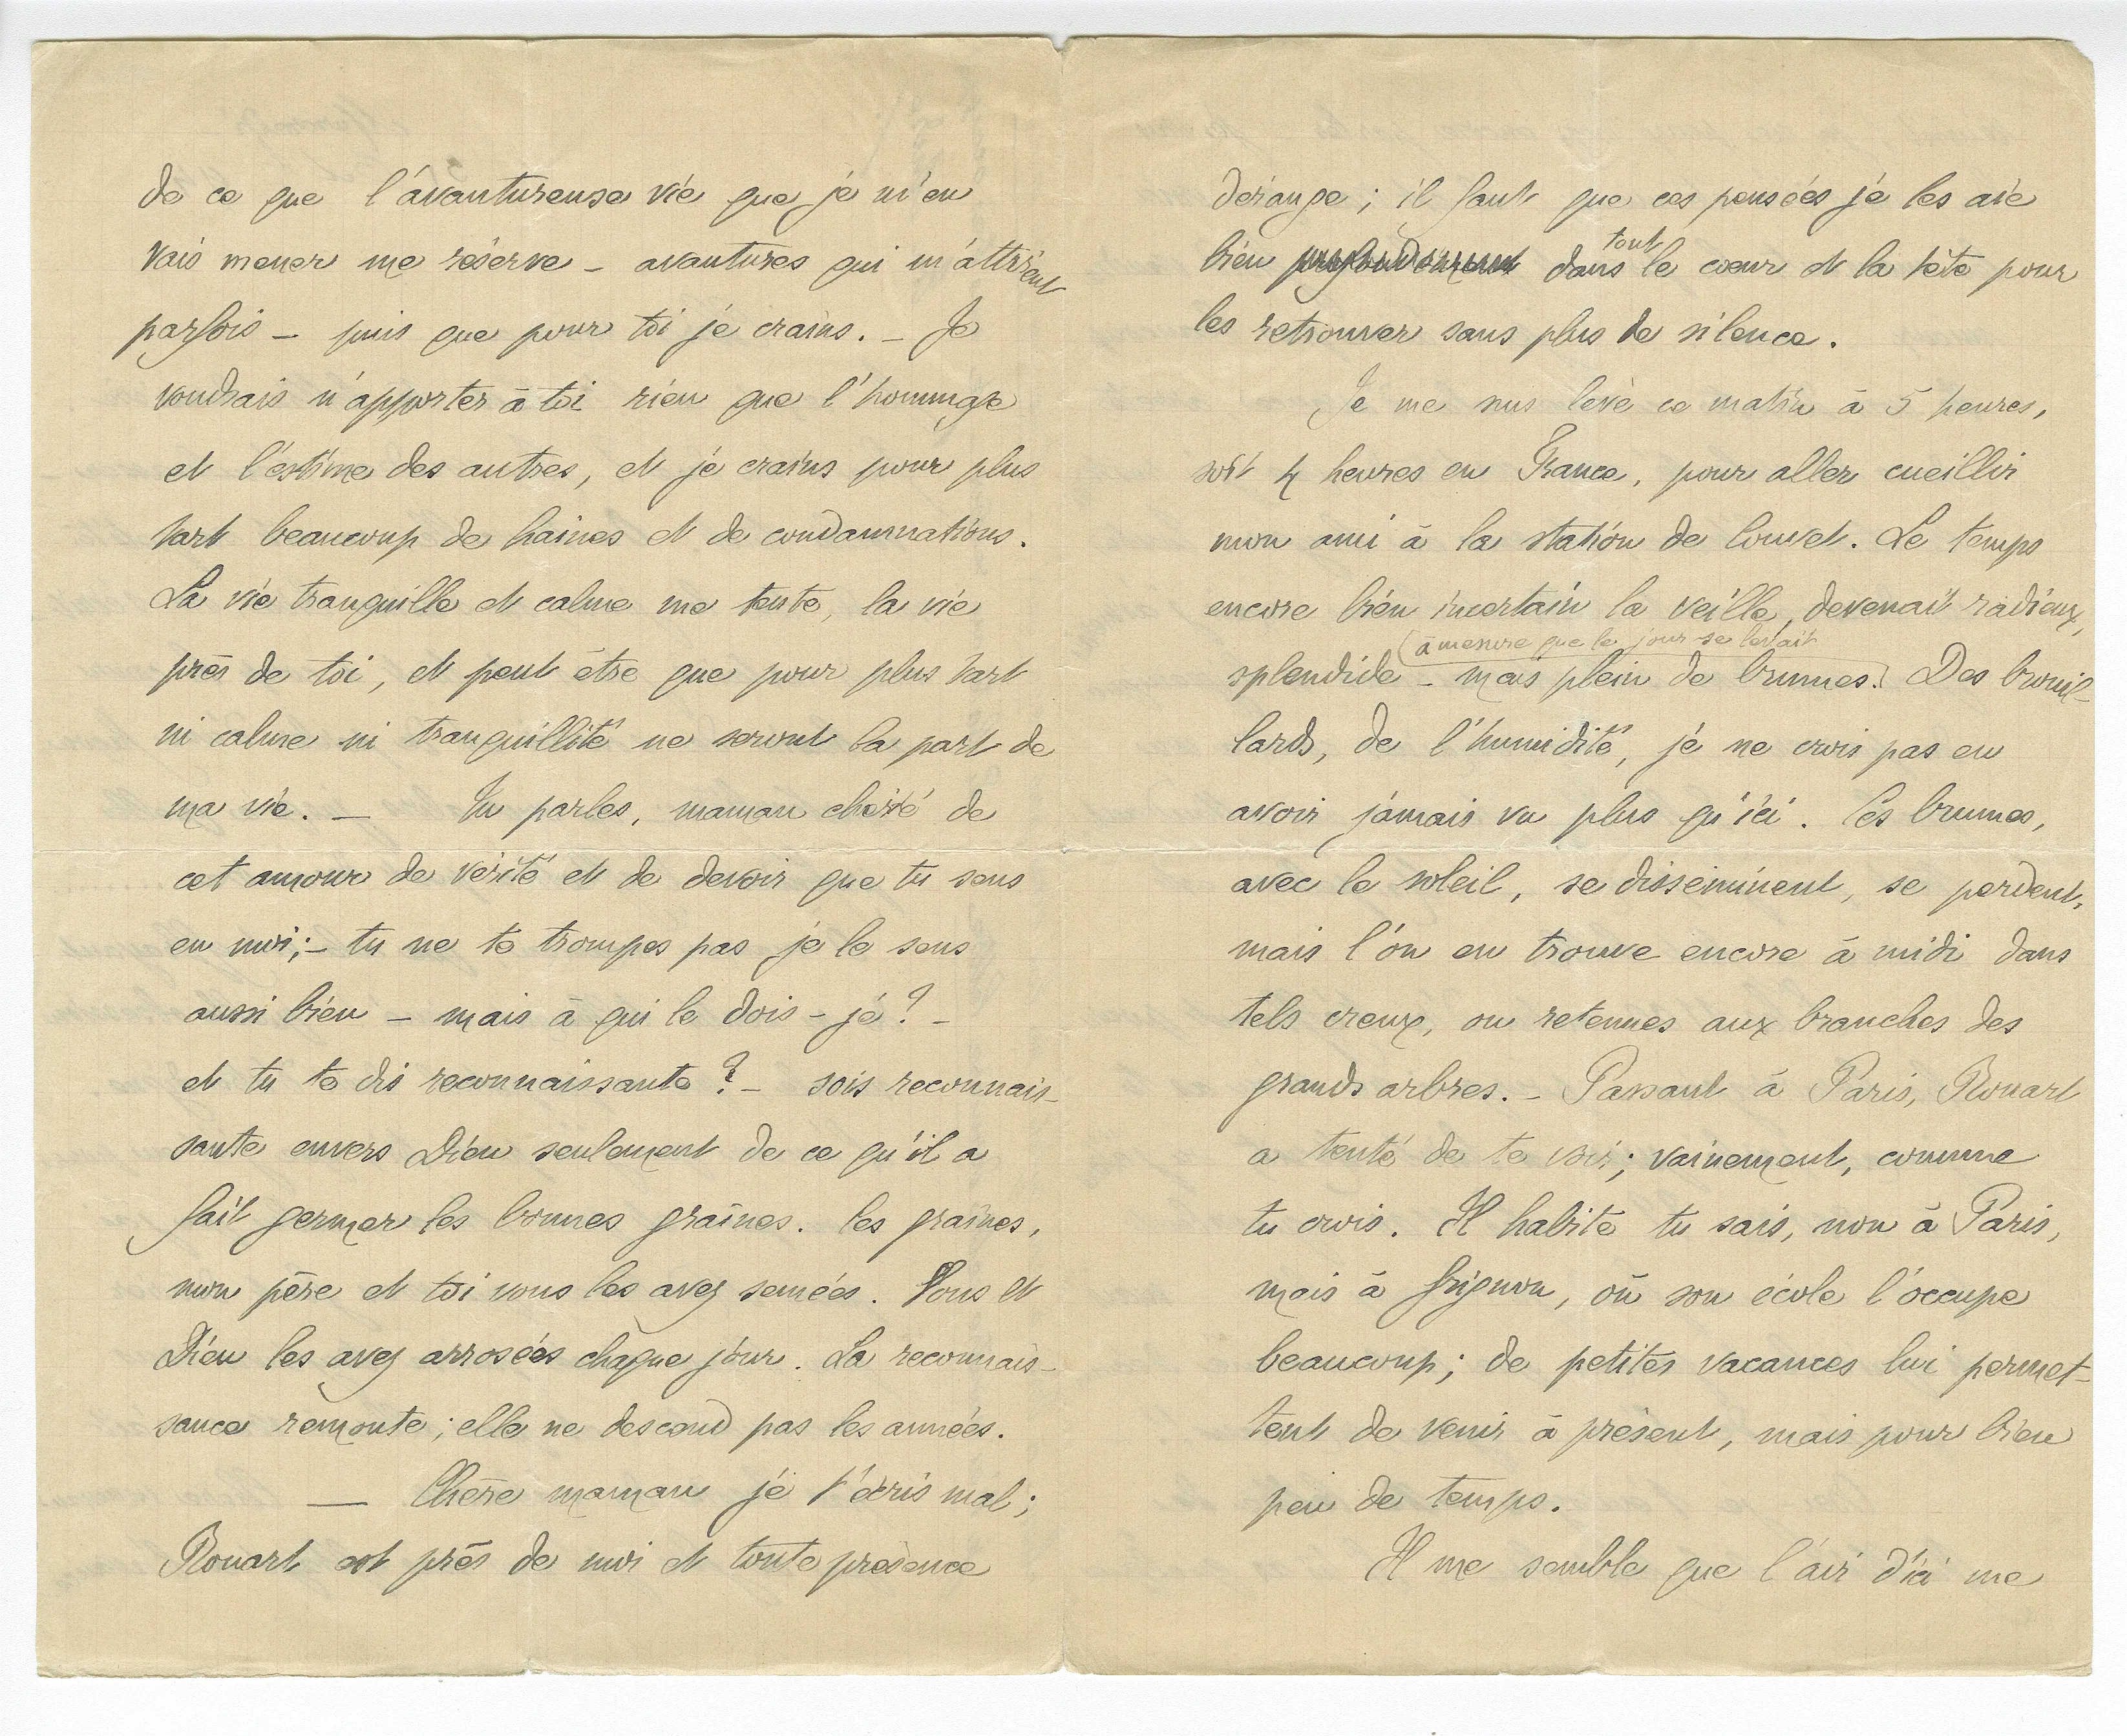 de ce que l'avantureuse vie que je m'en
vais mener me réserve – avantures qui m'attirent
parfois – puis que pour toi je crains. – Je
voudrais n'apporter à toi rien que l'hommage
et l'estime des autres, et je crains pour plus
tart beaucoup de haines et de condamnations.
La vie tranquille et calme me tente, la vie
près de toi, et peut être que pour plus tart
ni calme ni tranquillité ne seront la part de
ma vie. – Tu parles, maman chérie de
cet amour de vérité et de devoir que tu sens
en moi; – tu ne te trompes pas je le sens
aussi bien – mais à qui le dois-je? –
et tu te dis reconnaissante? – sois reconnais-
sante envers Dieu seulement de ce qu'il a
fait germer les bonnes graines. les graines,
mon père et toi vous les avez semées. Vous et
Dieu les avez arrosées chaque jour. La reconnais-
sance remonte; elle ne descend pas les années.
— Chère maman je t'écris mal;
Rouart est près de moi et toute présence
dérange; il faut que ces pensées je les aie
bien profondément dans tout le cœur et la tête pour
les retrouver sans plus de silence.
Je me suis levé ce matin à 5 heures,
soit 4 heures en France, pour aller cueillir
mon ami à la station de Couvet. Le temps
encore bien incertain la veille, devenait radieux,
(à mesure que le jour se levait
splendide – mais plein de brumes.) Des brouil-
lards, de l'humidité, je ne crois pas en
avoir jamais vu plus qu'ici. Ces brumes,
avec le soleil, se disséminent, se perdent,
mais l'on en trouve encore à midi dans
tels creux, ou retenues aux branches des
grands arbres. – Passant à Paris, Rouart
a tenté de te voir; vainement, comme
tu crois. Il habite tu sais, non à Paris,
mais à Grignon, où son école l'occupe
beaucoup; de petites vacances lui permet-
tent de venir à présent, mais pour bien
peu de temps.
Il me semble que l'air d'ici me